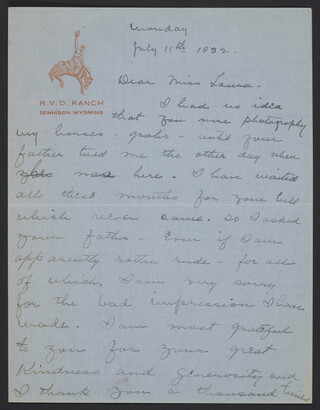 Monday
July 11th 1932.
R.V.D. RANCH
DENNISON, WYOMING
Dear Miss Laura -
I had no idea
that you were photography
my horses - gratis - until your
father told me the other day when
was here. I have waited
all these months for your bill
which never came. So I asked
your father - Even if I am
apparently rotten rude - for all
of which, I am very sorry
for the bad impression I have
made. I am most grateful
to you for your great
Kindness and generosity and
I thank you a thousand times